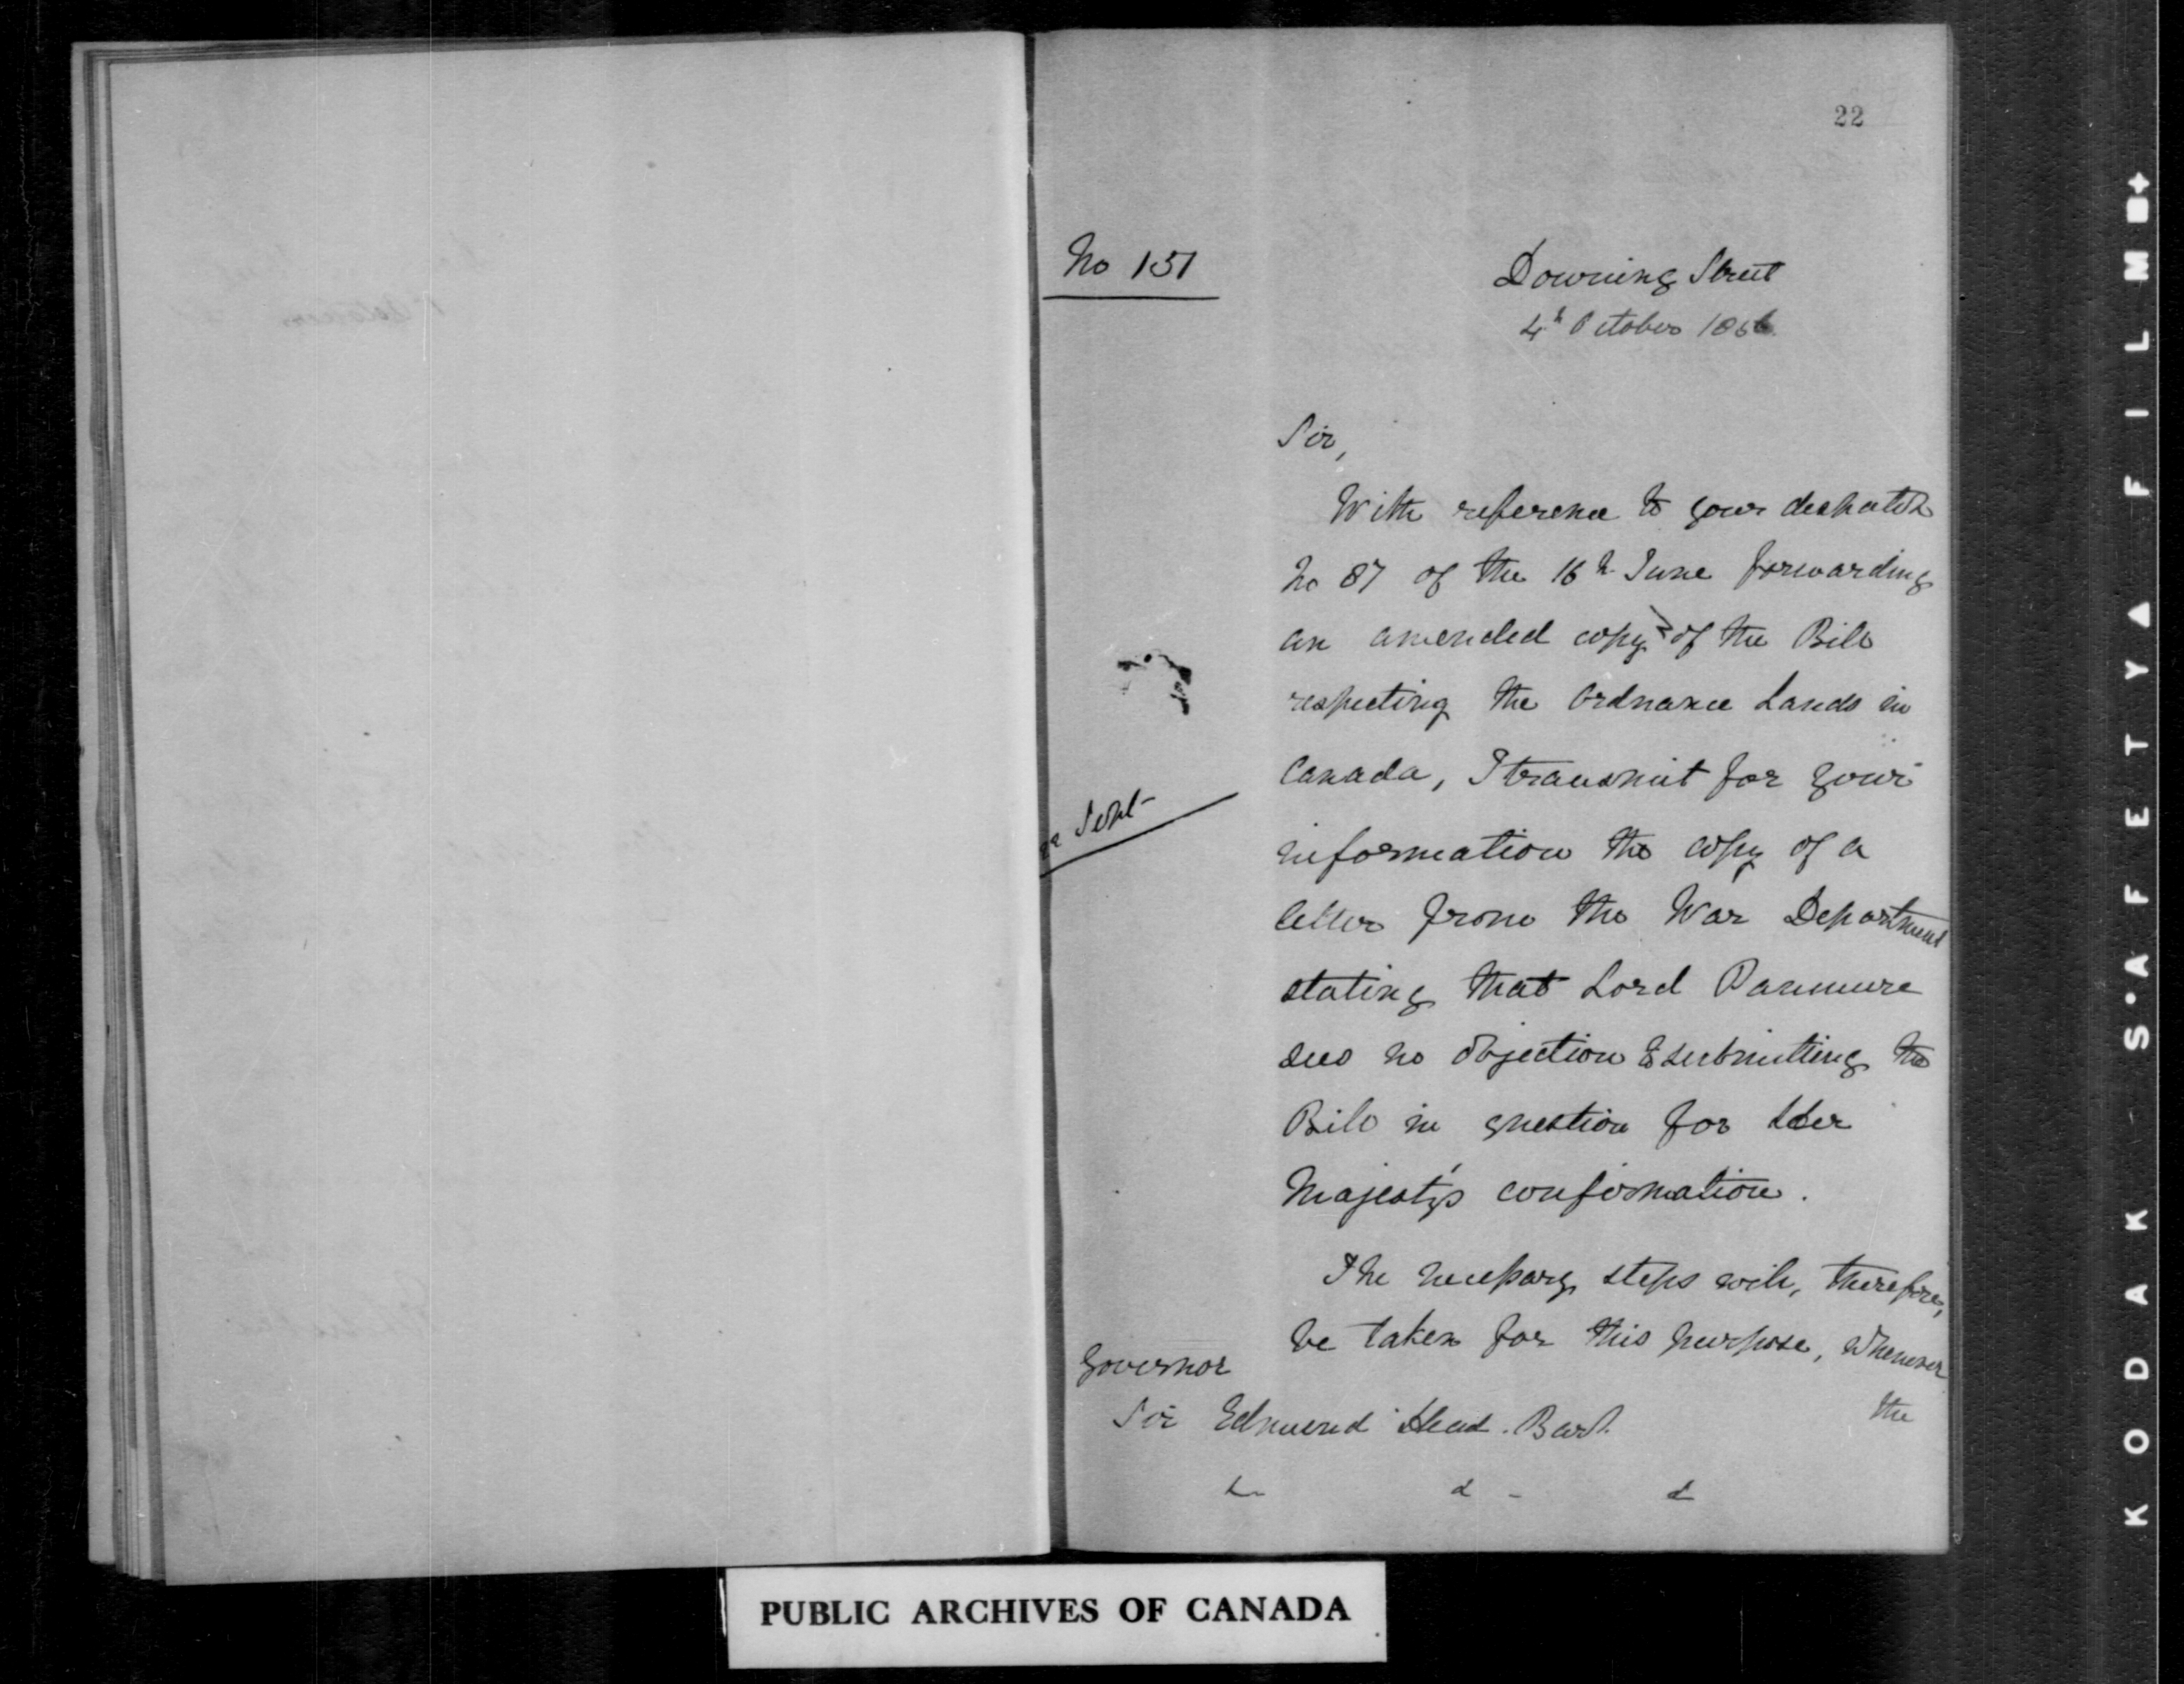 22
No 151
Downing Street
4h October 1856
Sir,
With reference to your despatch
No 87 of the 16h June forwarding
an amended copy of the Bill
respecting the Ordnance Lands in
Canada, I transmit for your
Sept
information the copy of a
letter from the War Department
stating that Lord Panmure
sees no objection to submitting the
Bill in question for Her
Majesty's confirmation.
The necessary steps will, therefore,
be taken for this purpose, whenever
the
Governor
Sir Edmund Head. Bart.
PUBLIC ARCHIVES OF CANADA
KODAK S.AFETY▲FILM